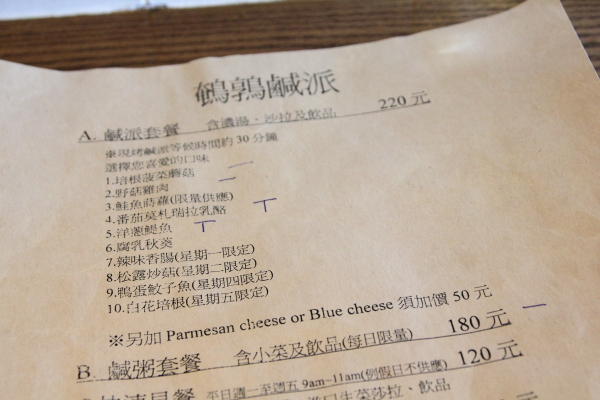 鵪鶉鹹派
A. 鹹派套餐 含濃湯、沙拉及飲品 220 元
※現烤鹹派等候時間約 30 分鐘
選擇您喜愛的口味
1.培根菠菜蘑菇
2.野菇雞肉
3.鮭魚蒔蘿(限量供應)
4.番茄莫札瑞拉乳酪
5.洋蔥鯷魚
6.腐乳秋葵
7.辣味香腸(星期一限定)
8.松露炒菇(星期二限定)
9.鴨蛋蚊子魚(星期四限定)
10.白花培根(星期五限定)
※另加 Parmesan cheese or Blue cheese 須加價 50 元
B. 鹹粥套餐 含小菜及飲品(每日限量) 180 元
早餐 平日週一至週五 9am~11am(例假日不供應) 120 元
生菜沙拉、飲品